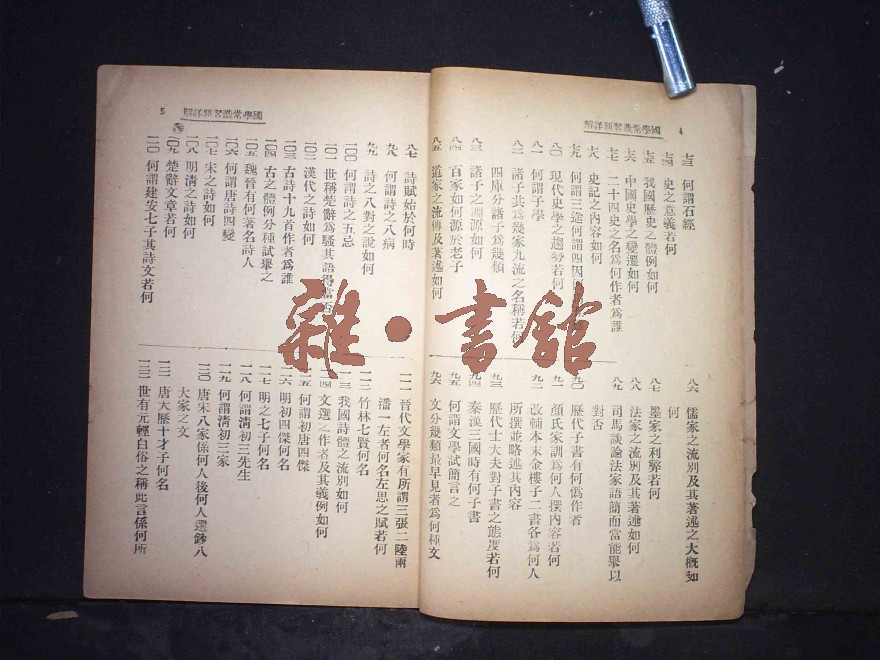 國學常識習題詳解 4
七三 何謂石經
七四 史之意義若何
七五 我國歷史之體例如何
七六 中國史學之變遷如何
七七 二十四史之名爲何作者爲誰
七八 史記之內容如何
七九 何謂三途何謂四因
八〇 現代史學之趨勢若何
八一 何謂子學
八二 諸子共爲幾家九流之名稱若何
四庫分諸子爲幾類
八三 諸子之淵源如何
八四 百家如何源於老子
八五 道家之流傳及著述如何
八六 儒家之流別及其著述之大概如
何
八七 墨家之利弊若何
八八 法家之流別及其著述如何
八九 司馬談論法家語簡而當能舉以
對否
九〇 歷代子書有何僞作者
九一 顏氏家訓爲何人撰內容若何
九二 改輔本末金樓子二書各爲何人
所撰並略述其內容
九三 歷代士大夫對子書之態度若何
九四 秦漢三國時有何子書
九五 何謂文學試簡言之
九六 文分幾類最早見者爲何種文
國學常識習題詳解 5
八七 詩賦始於何時
九八 何謂詩之八病
九九 詩之八對之說如何
一〇〇 何謂詩之五忌
一〇一 世稱楚辭爲騷其語得當否
一〇二 漢代之詩如何
一〇三 古詩十九首作者爲誰
一〇四 古之體例分種試舉之
一〇五 魏晉有何著名詩人
一〇六 何謂唐詩四變
一〇七 宋之詩如何
一〇八 明清之詩如何
一〇九 楚辭文章若何
一一〇 何謂建安七子其詩文若何
一一一 晉代文學家有所謂三張二陸兩
潘一左者何名左思之賦若何
一一二 竹林七賢何名
一一三 我國詩體之流別如何
一一四 文選之作者及其義例如何
一一五 何謂初唐四傑
一一六 明初四傑何名
一一七 明之七子何名
一一八 何謂清初三先生
一一九 何謂清初三家
一二〇 唐宋八家係何人後何人選鈔八
大家之文
一二一 唐大歷十才子何名
一二二 世有元輕白俗之稱此言係何所
雜·書館